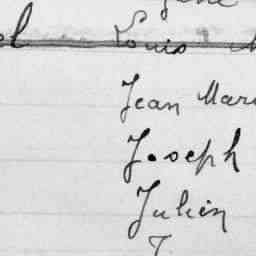 Louis
Jean Mari
Joseph
Julien